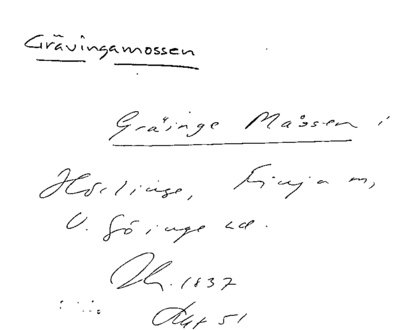 Grävingamossen
Gräinge Måssen i
Hörlinge, Finja sn,
V. Göinge hd.
1837
Akt 51